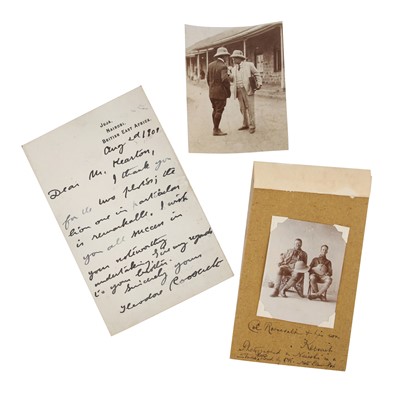 Juja,
Nairobi,
British East Africa.
Aug 2d 1909
Dear Mr. Kearton,
I thank you
for the two photos; the
lion one in particular
is remarkable. I wish
you all success in
your noteworthy
undertaking. Give my regards
to your brother.
Sincerely yours
Theodore Roosevelt
Col. Roosevelt & his son
Kermit